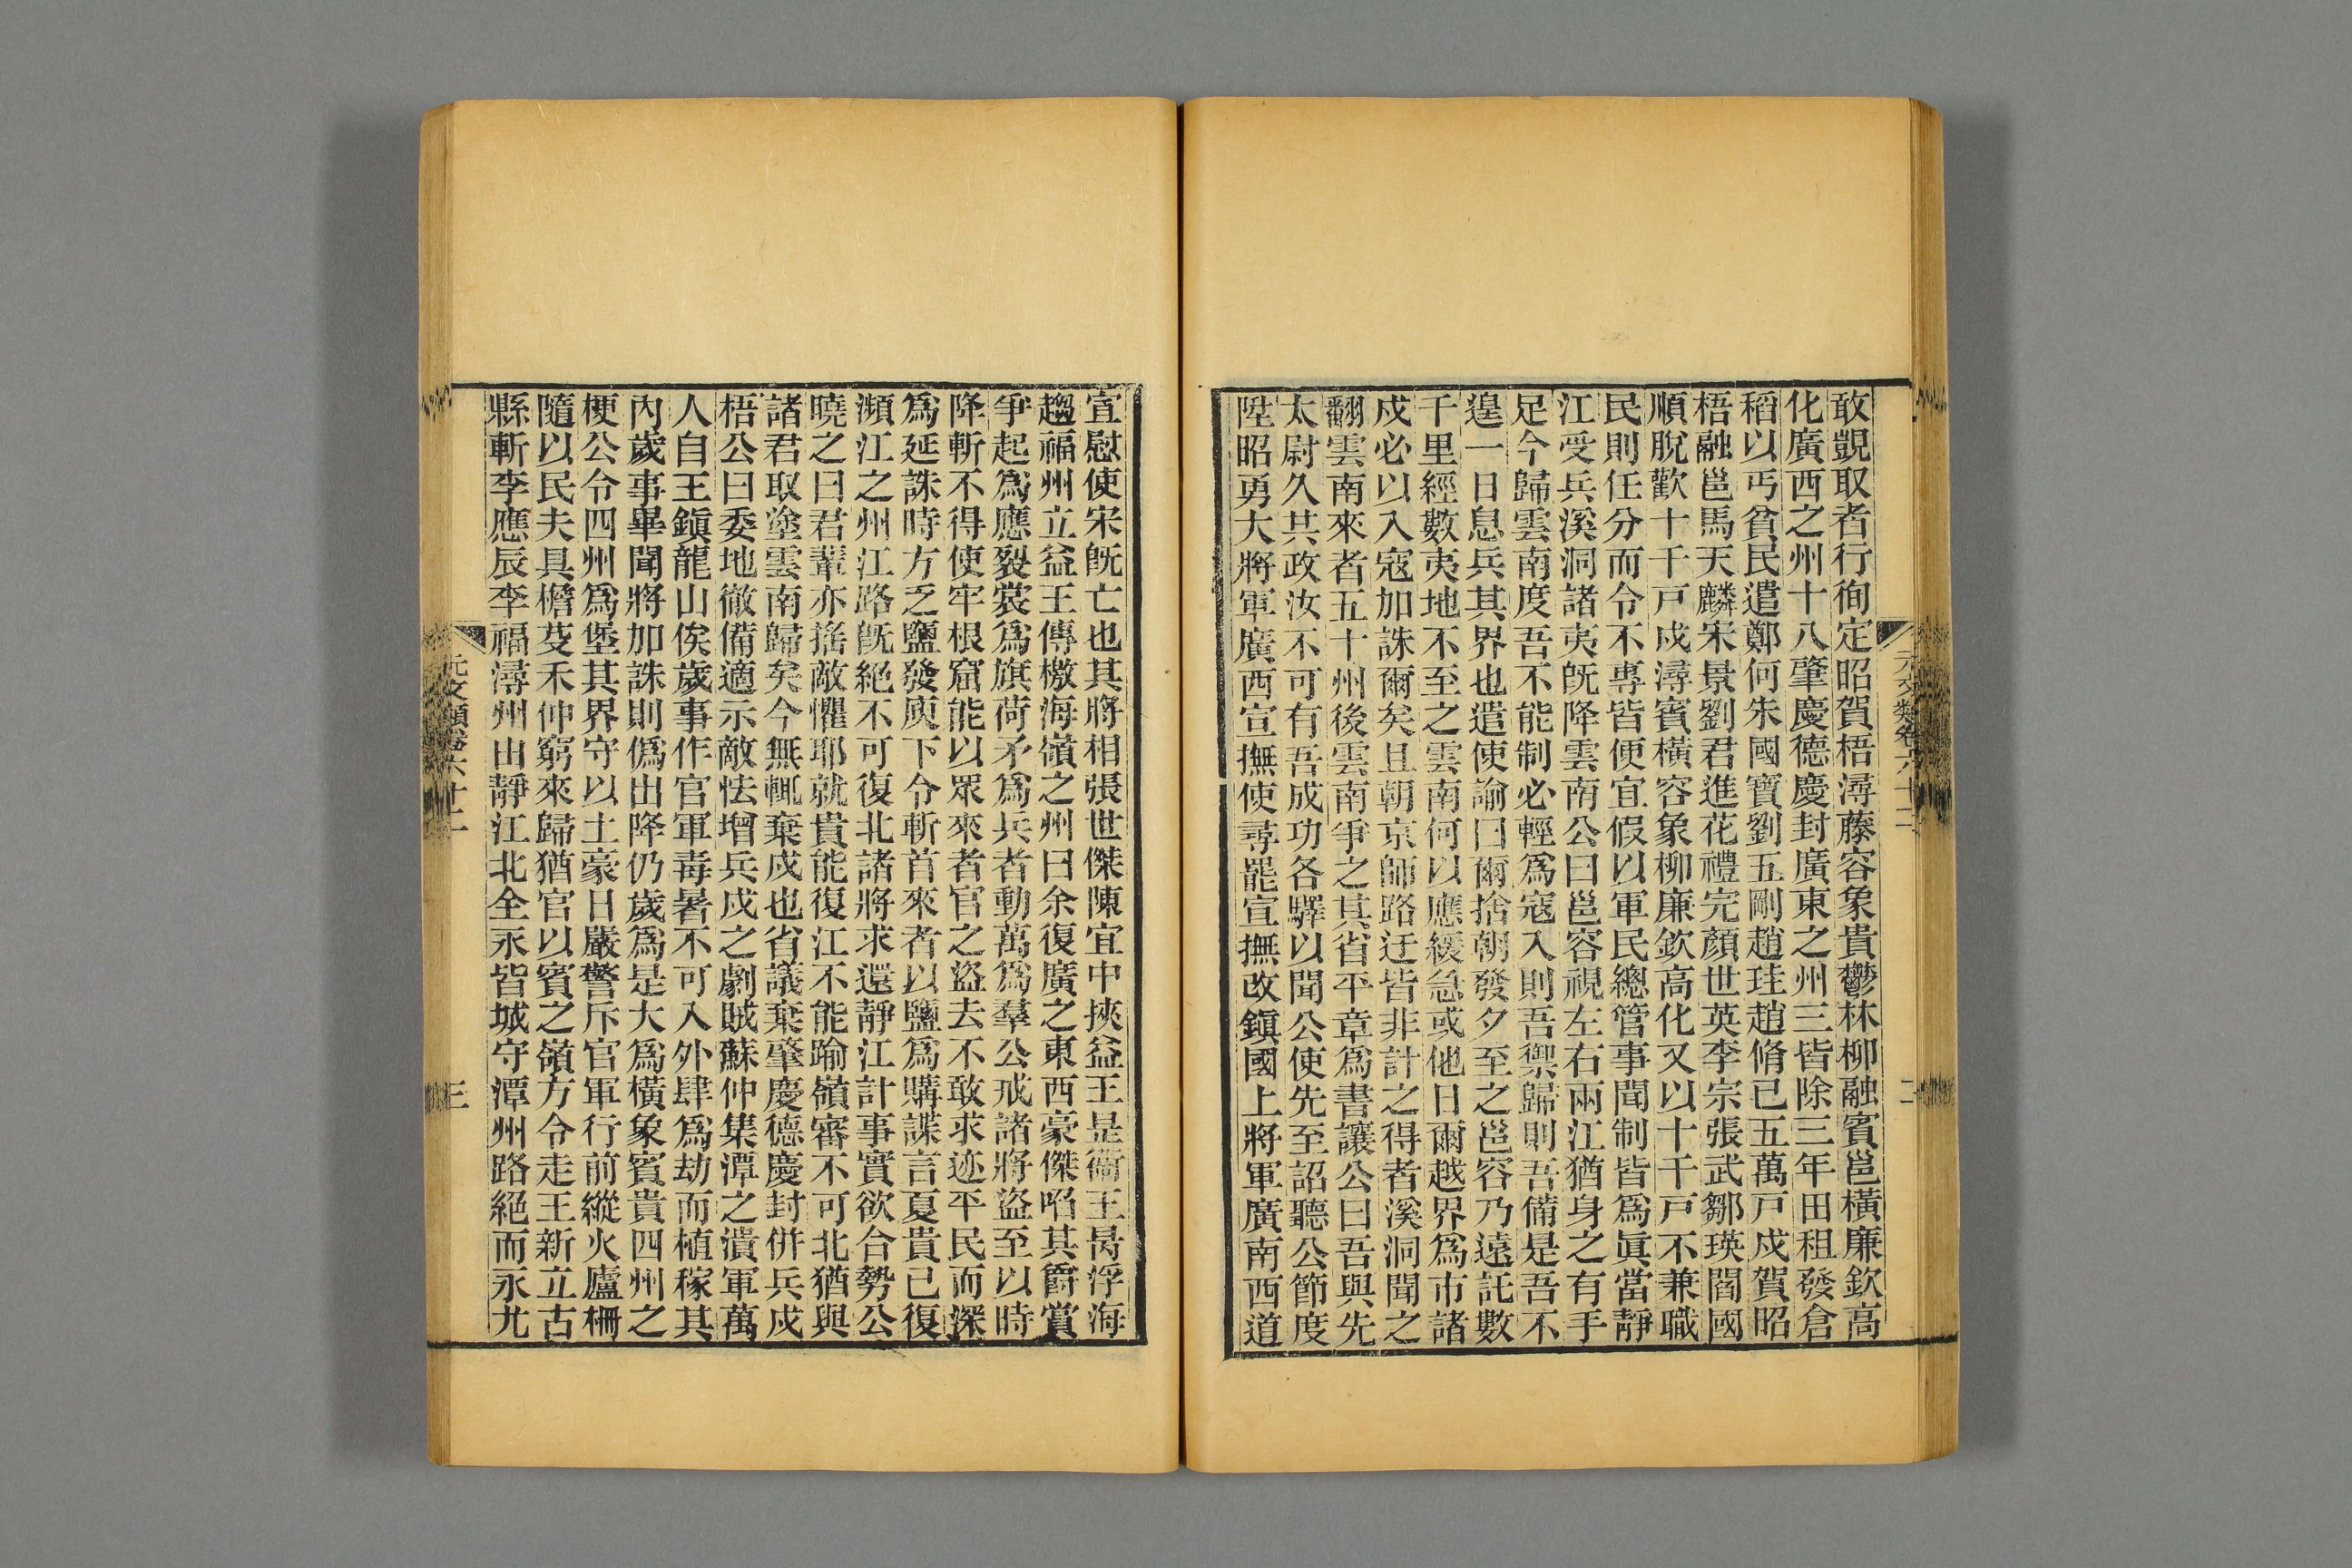 敢覬取者行徇定昭賀梧潯藤容象貴鬱林柳融賓邕橫廉欽高
化廣西之州十八肇慶德慶封廣東之州三皆除三年田租發倉
稻以丐貧民遣鄭何朱國寶劉五剛趙珪趙脩已五萬戸戍賀昭
梧融邕馬天麟宋景劉君進花禮完顏世英李宗張武鄒瑛閻國
順脫歡十千戸戍潯賓橫容象柳廉欽高化又以十千戸不兼職
民則任分而令不專皆便宜假以軍民總管事聞制皆爲眞當靜
江受兵溪洞諸夷旣降雲南公曰邕容視左右兩江猶身之有手
足今歸雲南度吾不能制必輕爲寇入則吾禦歸則吾備是吾不
遑一日息兵其界也遣使諭曰爾捨朝發夕至之邕容乃遠託數
千里經數夷地不至之雲南何以應緩急或他日爾越界爲市諸
戍必以入寇加誅爾矣且朝京師路迂皆非計之得者溪洞聞之
翻雲南來者五十州後雲南爭之其省平章爲書讓公曰吾與先
太尉久共政汝不可有吾成功各驛以聞公使先至詔聽公節度
陞昭勇大將軍廣西宣撫使尋罷宣撫改鎭國上將軍廣南西道
元文類卷六十二
二
宣慰使宋旣亡也其將相張世傑陳宜中挾益王昰衞王昺浮海
趨福州立益王傳檄海嶺之州曰余復廣之東西豪傑啗其爵賞
爭起爲應裂裳爲旗荷矛爲兵者動萬爲羣公戒諸將盜至以時
降斬不得使牢根窟能以眾來者官之盜去不敢求迹平民而深
爲延誅時方乏鹽發庾下令斬首來者以鹽爲購諜言夏貴已復
瀕江之州江路旣絕不可復北諸將求還靜江計事實欲合勢公
曉之曰君輩亦搖敵懼耶就貴能復江不能踰嶺審不可北猶與
諸君取塗雲南歸矣今無輒棄戍也省議棄肇慶德慶封併兵戍
梧公曰委地徹備適示敵怯增兵戍之劇賊蘇仲集潭之潰軍萬
人自王鎭龍山俟歲事作官軍毒暑不可入外肆爲劫而植稼其
內歲事畢聞將加誅則僞出降仍歲爲是大爲橫象賓貴四州之
梗公令四州爲堡其界守以土豪日嚴警斥官軍行前縱火廬柵
隨以民夫具檐芟禾仲窮來歸猶官以賓之嶺方令走王新立古
縣斬李應辰李福潯州由靜江北全永皆城守潭州路絕而永尤
元文類卷六十二
三